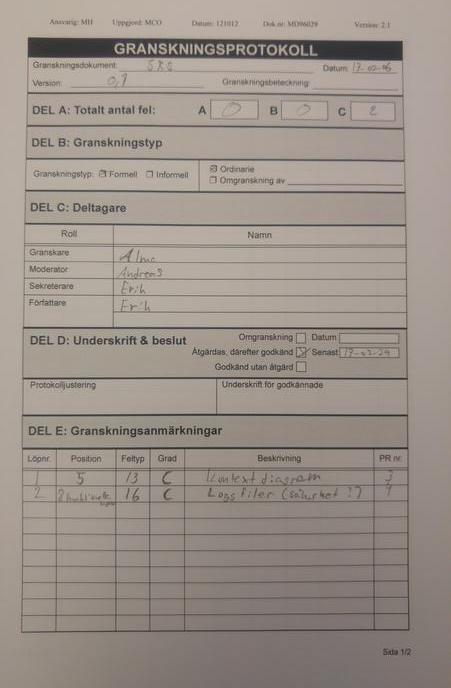 Ansvarig: MH Uppgjord: MCO Datum: 121012 Dok nr: MD96029 Version: 2.1
GRANSKNINGSPROTOKOLL
Granskningsdokument: SRS Datum: 17-02-
Version: 0,1 Granskningsbeteckning:
DEL A: Totalt antal fel: A 0 B 0 C 2
DEL B: Granskningstyp
Granskningstyp: Formell Informell
Ordinarie
Omgranskning av
DEL C: Deltagare
Roll Namn
Granskare Alma
Moderator Andreas
Sekreterare Erik
Författare Erik
DEL D: Underskrift & beslut
Omgranskning Datum
Åtgärdas, därefter godkänd Senast 17-02-24
Godkänd utan åtgärd
Protokolljustering Underskrift för godkännade
DEL E: Granskningsanmärkningar
Löpnr. Position Feltyp Grad Beskrivning PR nr.
1 5 13 C Kontext diagram
2 8 16 C Logg filer (säkerhet?)
Sida 1/2